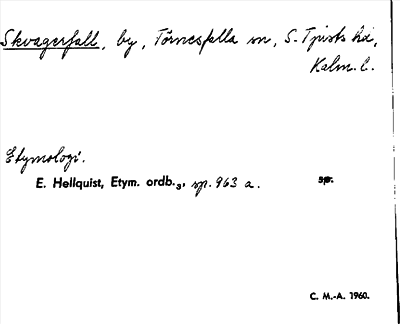 Skvagerfall, by, Törnesfalla sn, S. Tjusts hd,
Kalm. l.
Etymologi.
E. Hellquist, Etym. ordb.₃, sp. 963 a. sp.
C. M.-A. 1960.